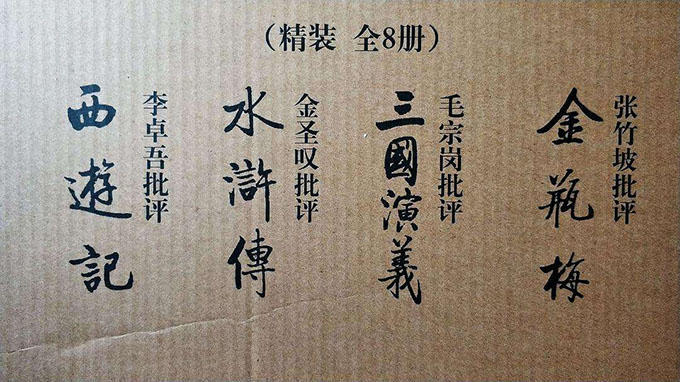 （精装 全8册）
张竹坡批评
金瓶梅
毛宗岗批评
三國演義
金圣叹批评
水滸傳
李卓吾批评
西遊記